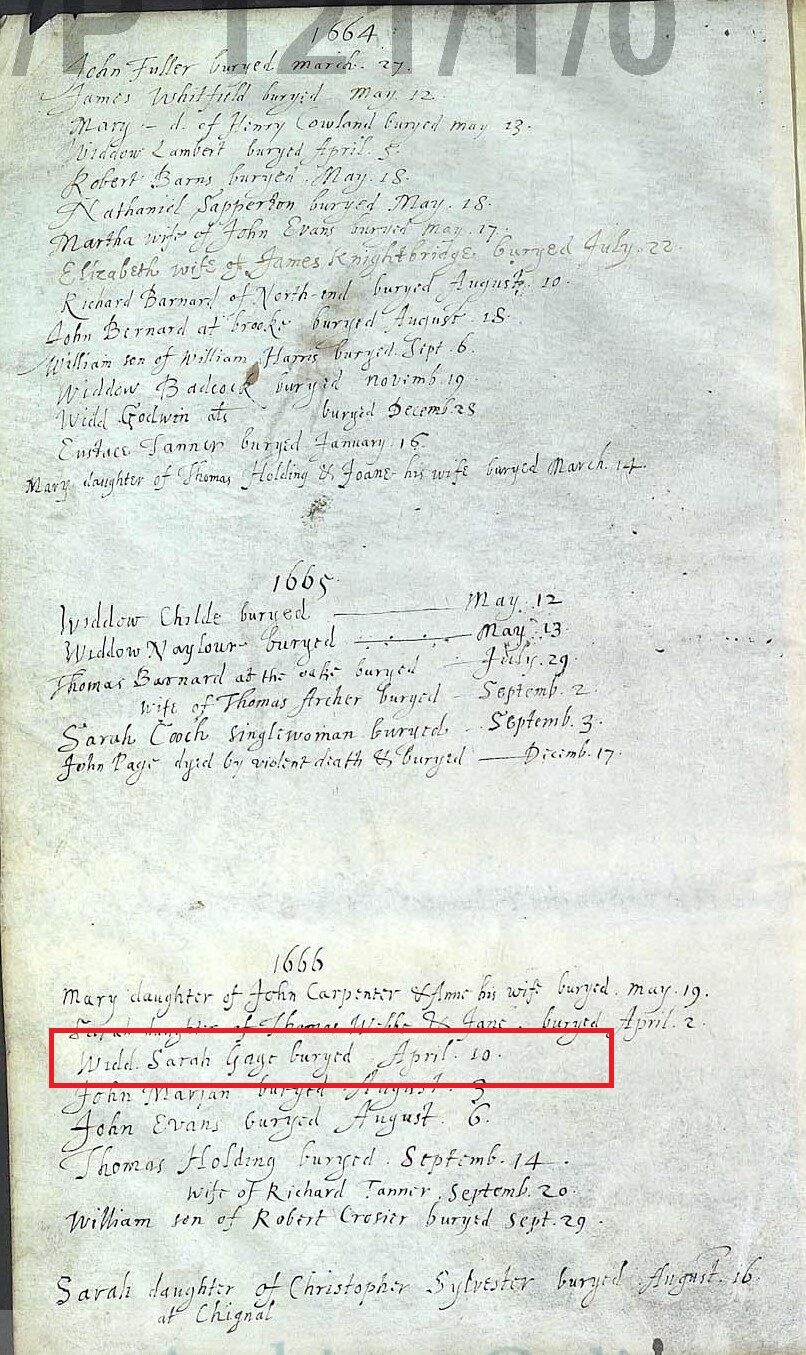 /P 121/1/0
1664
John Fuller buryed march. 27.
James Whitfield buryed May. 12.
Mary - d. of Henry Cowland buryed may 13.
Widdow Lambert buryed April. 5.
Robert Barns buryed. May. 18.
Nathaniel Sapperton buryed May. 18.
Martha wife of John Evans buryed may. 17.
Elizabeth wife of James Knightbridge. buryed July. 22.
Richard Barnard of North-end buryed August. 10.
John Bernard at brooke buryed August 18.
William son of William Harris buryed. Sept. 6.
Widdow Badcock buryed novemb. 19.
Widd. Godwin als buryed Decemb. 28
Eustace Tanner buryed January 16.
Mary daughter of Thomas Holding & Joane his wife buryed March. 14.
1665.
Widdow Childe buryed May. 12
Widdow Naylour buryed May. 13.
Thomas Barnard at the oake buryed - July. 29
wife of Thomas Archer buryed - Septemb. 2.
Sarah Cooch singlewoman buryed - Septemb. 3.
John Page dyed by violent death & buryed — Decemb. 17.
1666
Mary daughter of John Carpenter & Anne his wife buryed. may. 19.
Sarah daughter of Thomas Webbe & Jane. buryed April. 2.
Widd. Sarah Gage buryed April. 10.
John Marjan buryed August. 3
John Evans buryed August. 6.
Thomas Holding buryed. Septemb. 14.
wife of Richard Tanner. Septemb. 20.
William son of Robert Crosier buryed Sept. 29.
Sarah daughter of Christopher Sylvester buryed. August. 16.
at Chignal